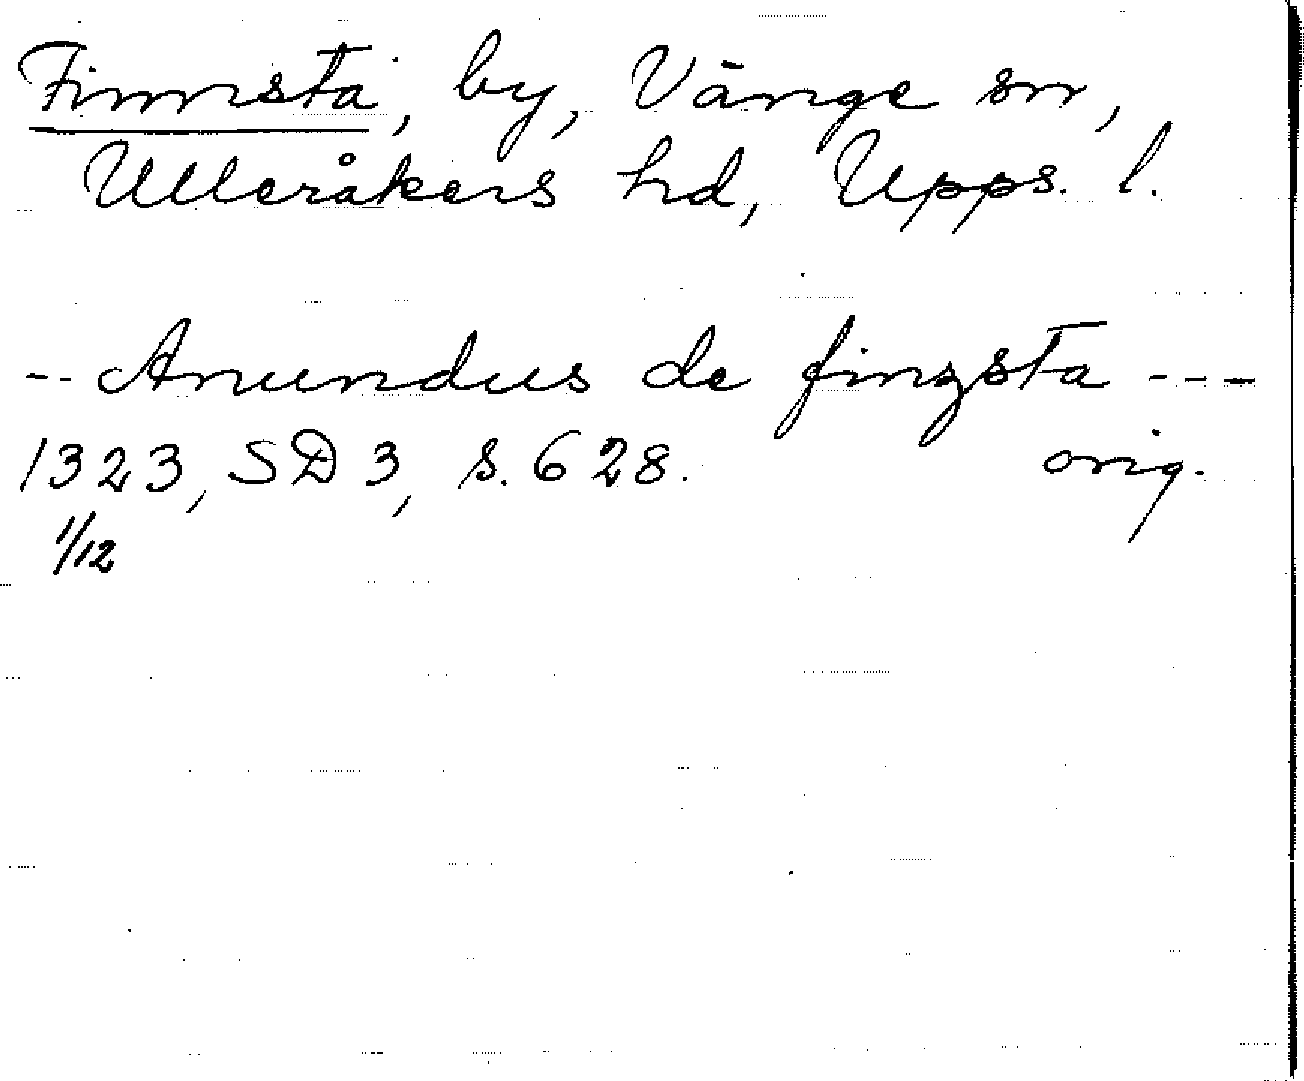 Finnsta, by, Vänge sn,
Ulleråkers hd, Upps. l.
-- Anundus de finzsta ---
1323, SD 3, s. 628. orig.
1/12